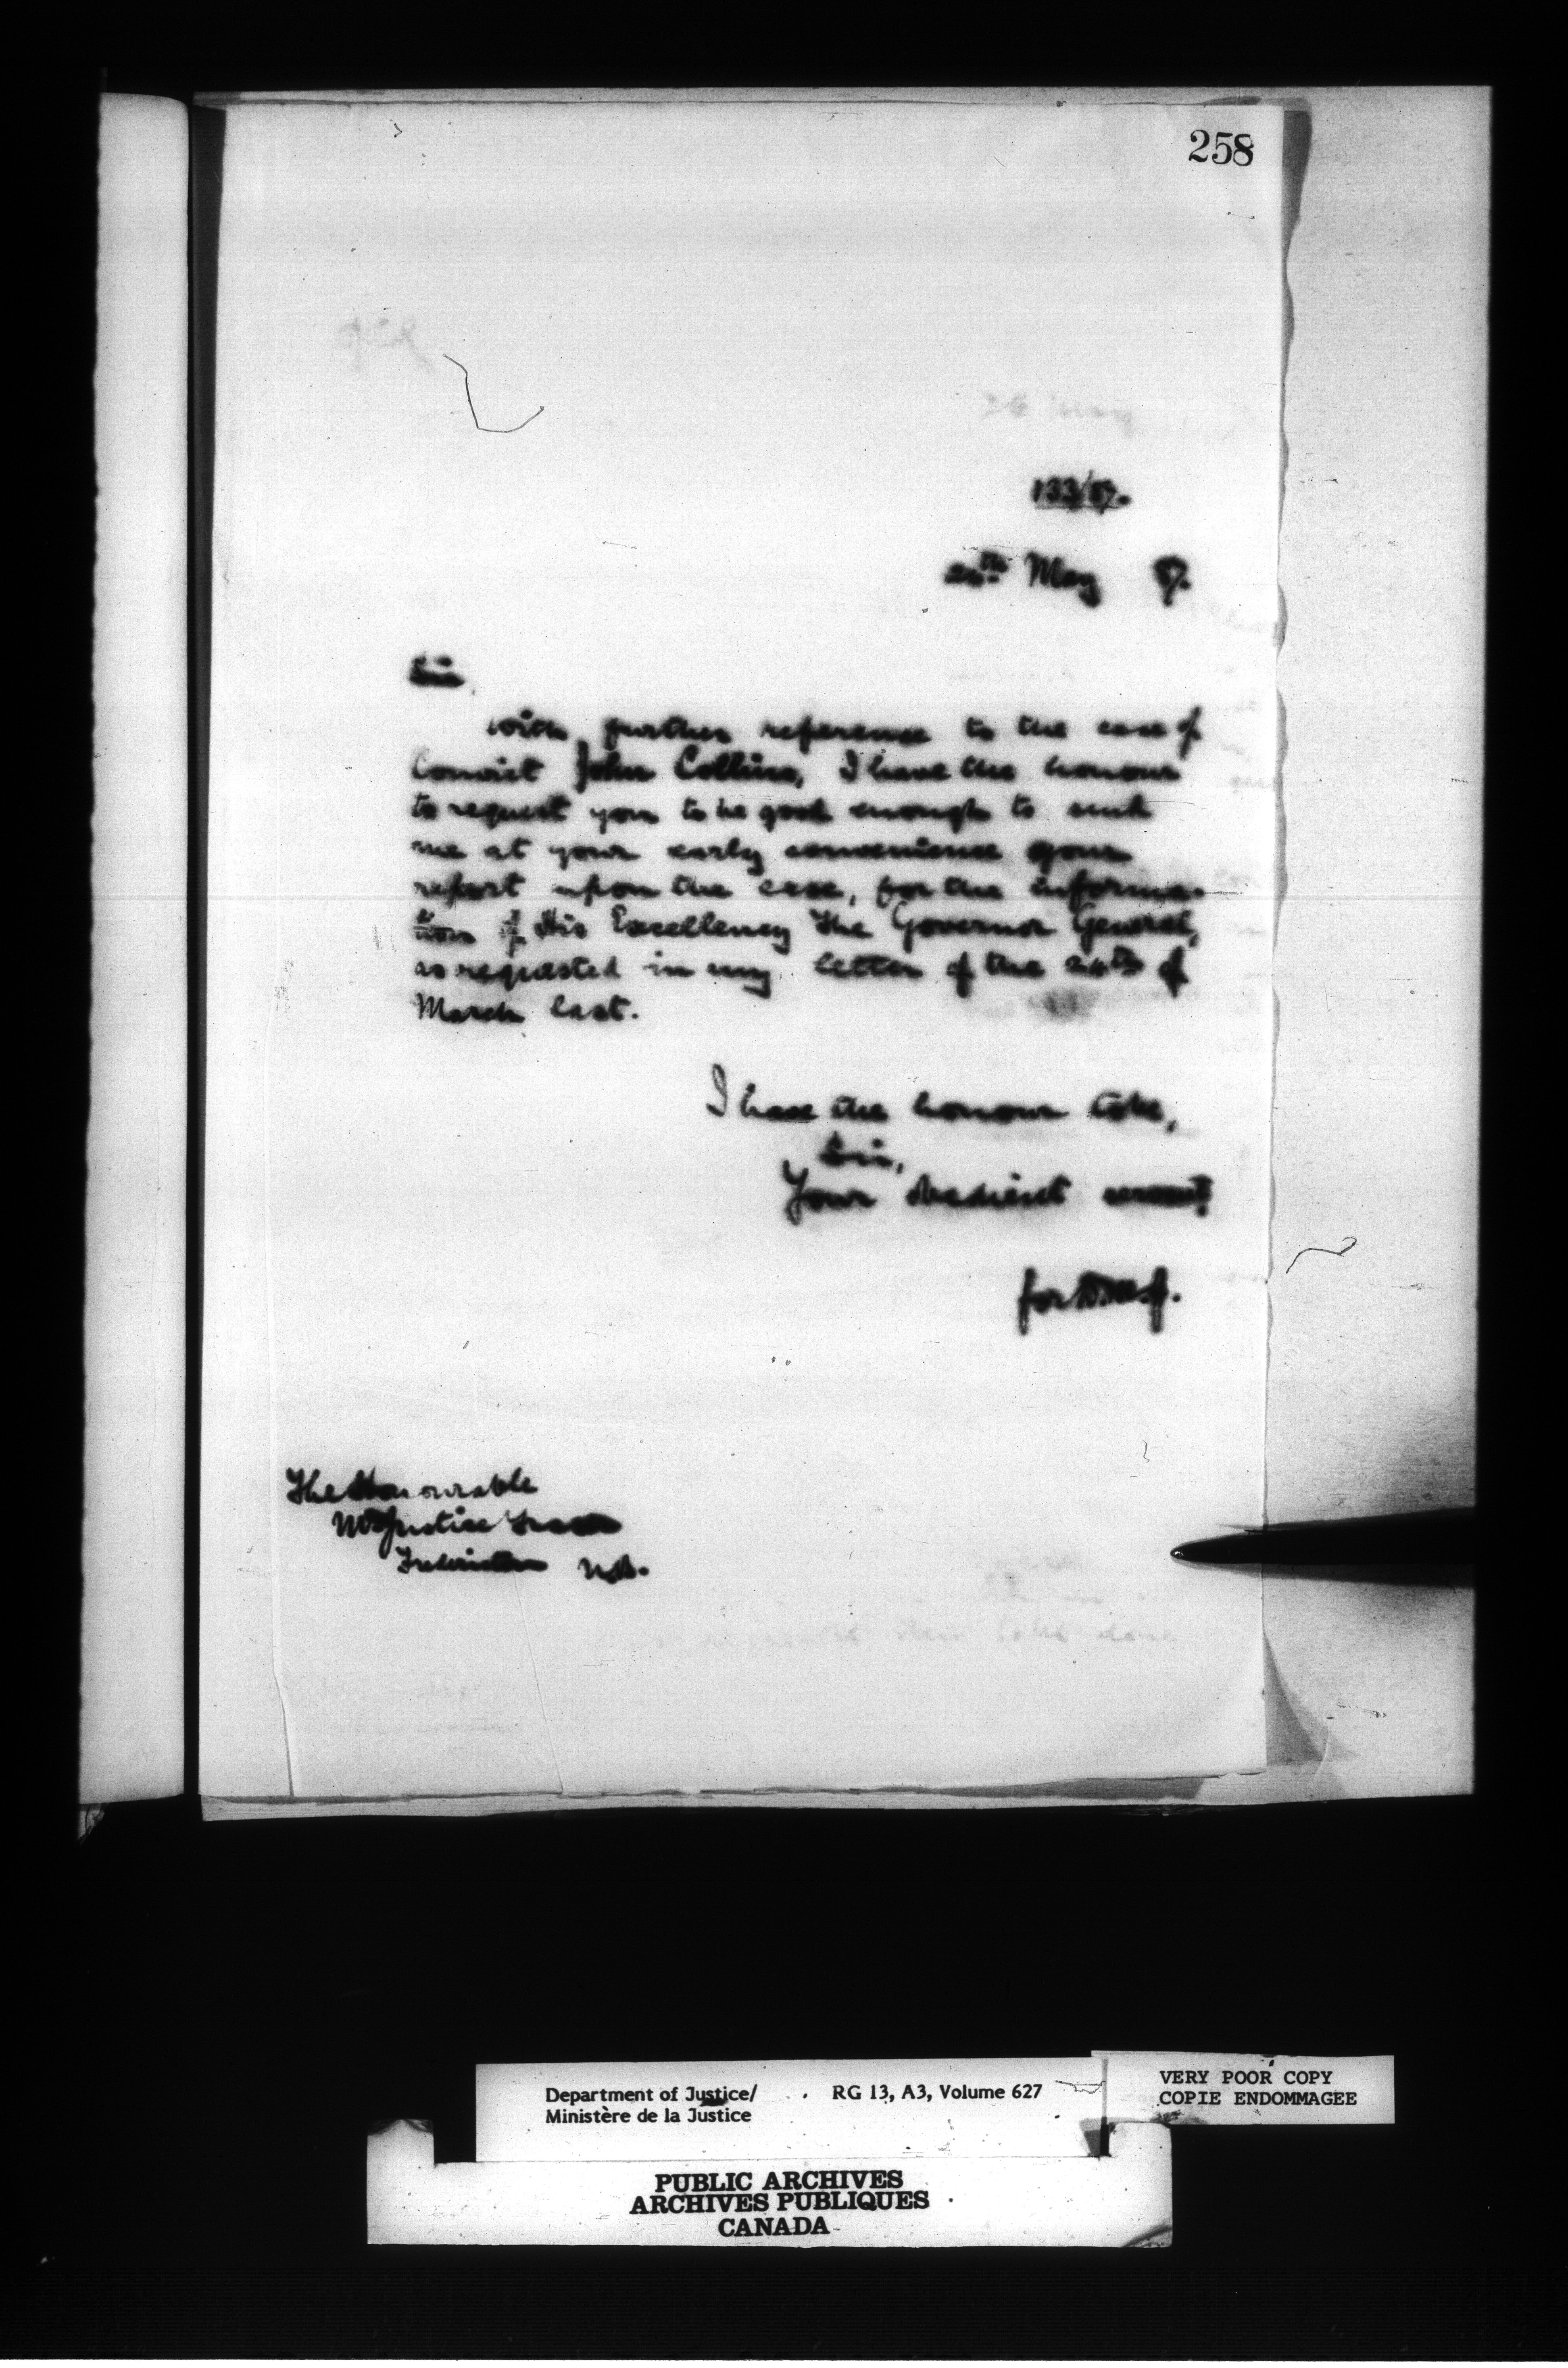 258
133/87.
May 87.
Sir,
With further reference to the case of
Convict John Collins, I have the honour
to request you to be good enough to send
me at your early convenience your
report upon the case, for the informa-
tion of His Excellency The Governor General,
as requested in my letter of the 24th of
March last.
I have the honour to be,
Sir,
Your obedient servant
for D.M.J.
The Honourable
Mr Justice
Fredericton N.B.
Department of Justice/ RG 13, A3, Volume 627
Ministère de la Justice
VERY POOR COPY
COPIE ENDOMMAGEE
PUBLIC ARCHIVES
ARCHIVES PUBLIQUES
CANADA